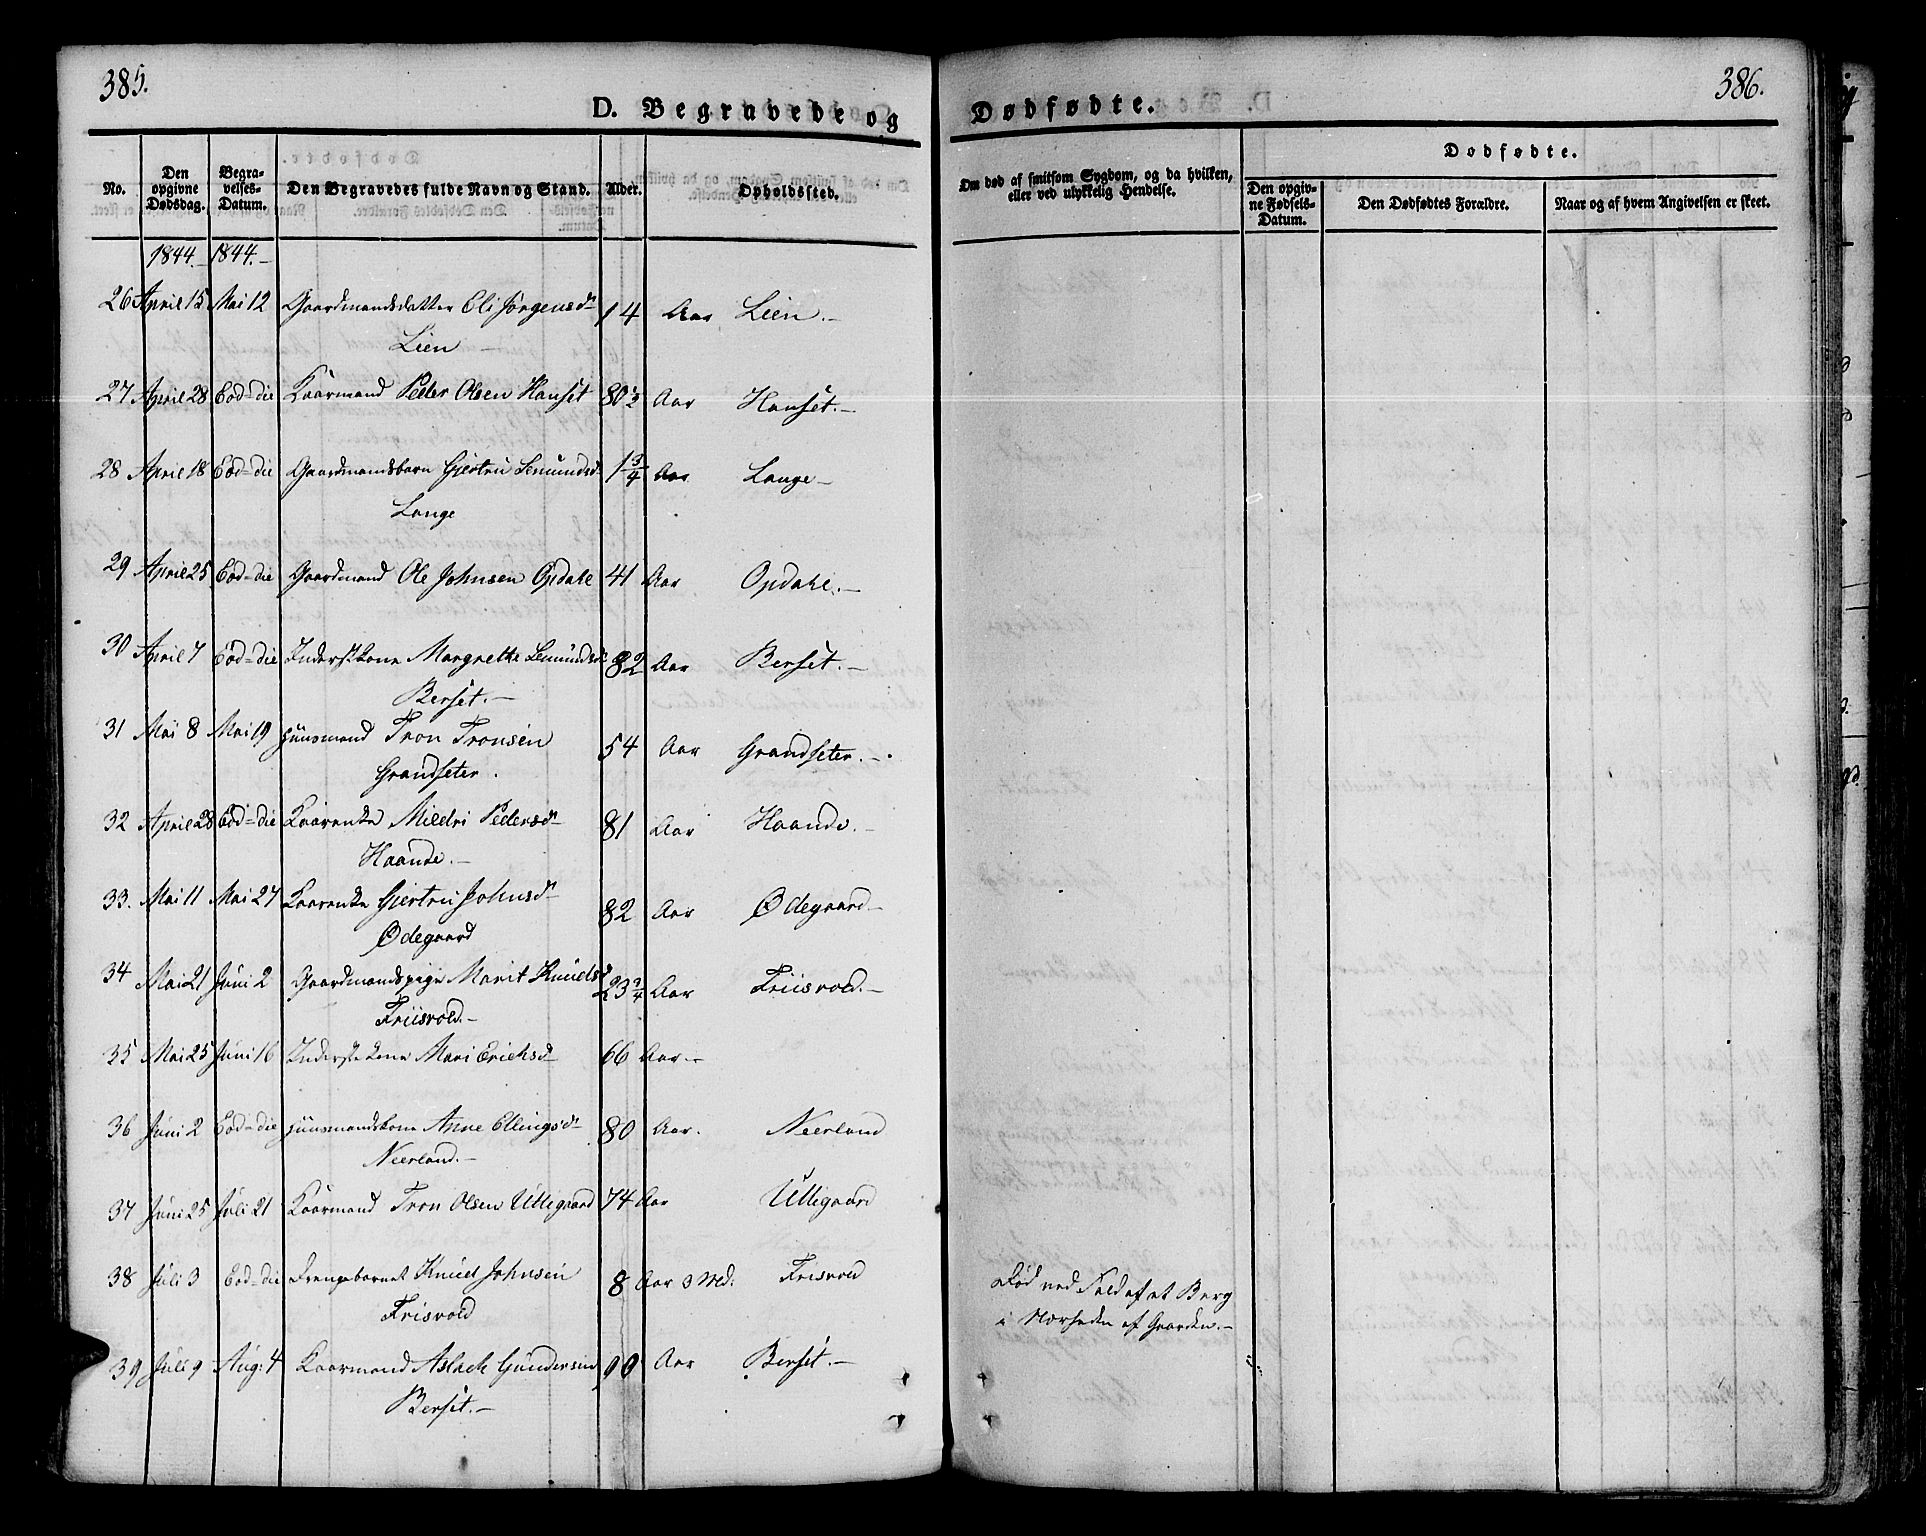 385.
D. Begravede og
No. Den opgivne Dødsdag. Begravelses-Datum. Den Begravedes fulde Navn og Stand. Alder. Opholdssted.
1844.- 1844.-
26 April 15 Mai 12 Gaardmandsdatter Eli Jörgensdr 14 Aar Lien.-
Lien -
27 April 28 Eod=die Kaarmand Peder Olsen Hanset 80 1/2 Aar Hanset.-
28 April 18 Eod=die Gaardmandsbarn Gjertru Amundsdr 1 3/4 Aar Lange-
Lange
29 April 25 Eod=die Gaardmand Ole Johnsen Opdahl 41 Aar Opdahl.-
30 April 7 Eod=die Inderstkone Margrethe Amundsdr 82 Aar Berset.-
Berset.-
31 Mai 8 Mai 19 Huusmand Tron Tronsen 54 Aar Grandseter.-
Grandseter.
32 April 28 Eod=die Kaarenke Mildri Pedersdr 81 Aar Haande.-
Haande.-
33. Mai 11 Mai 27 Kaarenke Gjertru Johnsdr 82 Aar Ødegaard.-
Ødegaard
34 Mai 21 Juni 2 Gaardmandspige Marit Knudsdr 23 3/4 Aar Friisvold.-
Friisvold.-
35 Mai 25 Juni 16 Inderstkone Mari Erichsdr 66 Aar.-
36 Juni 2 Eod=die Huusmandskone Anne Ellingsdr 80 Aar. Neerland
Neerland.-
37 Juni 25 Juli 21 Kaarmand Tron Olsen Uttigaard 74 Aar Uttigaard
38 Juli 3 Eod=die Drengebarnet Knud Johnsen 8 Aar 3 Md: Frisvold
Frisvold
39 Juli 9 Aug: 4 Kaarmand Aslach Gundersen 90 Aar Berset.-
Berset.-
386.
Dødfødte.
Om død af smitsom Sygdom, og da hvilken, eller ved ulykkelig Hendelse.
Dødfødte.
Den opgivne Fødsels-Datum. Den Dødfødtes Forældre. Naar og af hvem Angivelsen er skeet.
Død ved Fald af et Berg
i Nærheden af Gaarden.-